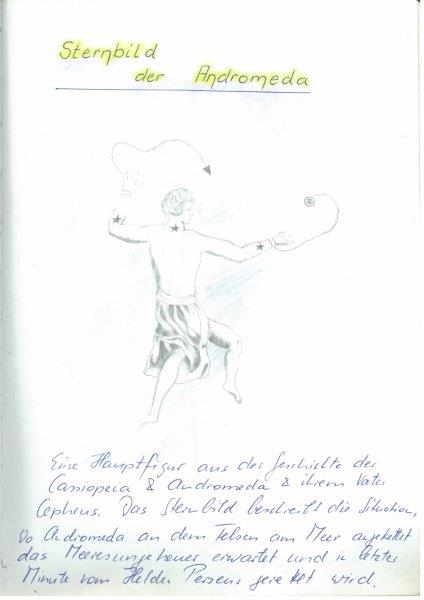 Sternbild
der Andromeda
Eine Hauptfigur aus der Geschichte der
Cassiopeia & Andromeda & ihrem Vater
Cepheus. Das Sternbild beschreibt die Situation,
wo Andromeda an dem Felsen am Meer angekettet
das Meeresungeheuer erwartet und in letzter
Minute vom Helden Perseus gerettet wird.